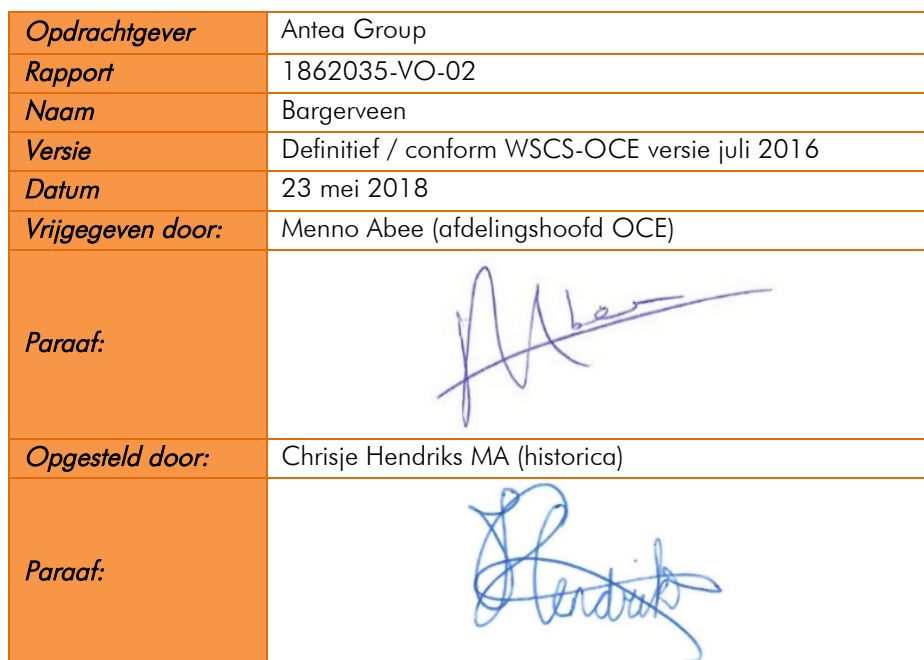 Opdrachtgever Antea Group
Rapport 1862035-VO-02
Naam Bargerveen
Versie Definitief / conform WSCS-OCE versie juli 2016
Datum 23 mei 2018
Vrijgegeven door: Menno Abee (afdelingshoofd OCE)
Paraaf: MAbee
Opgesteld door: Chrisje Hendriks MA (historica)
Paraaf: Hendriks